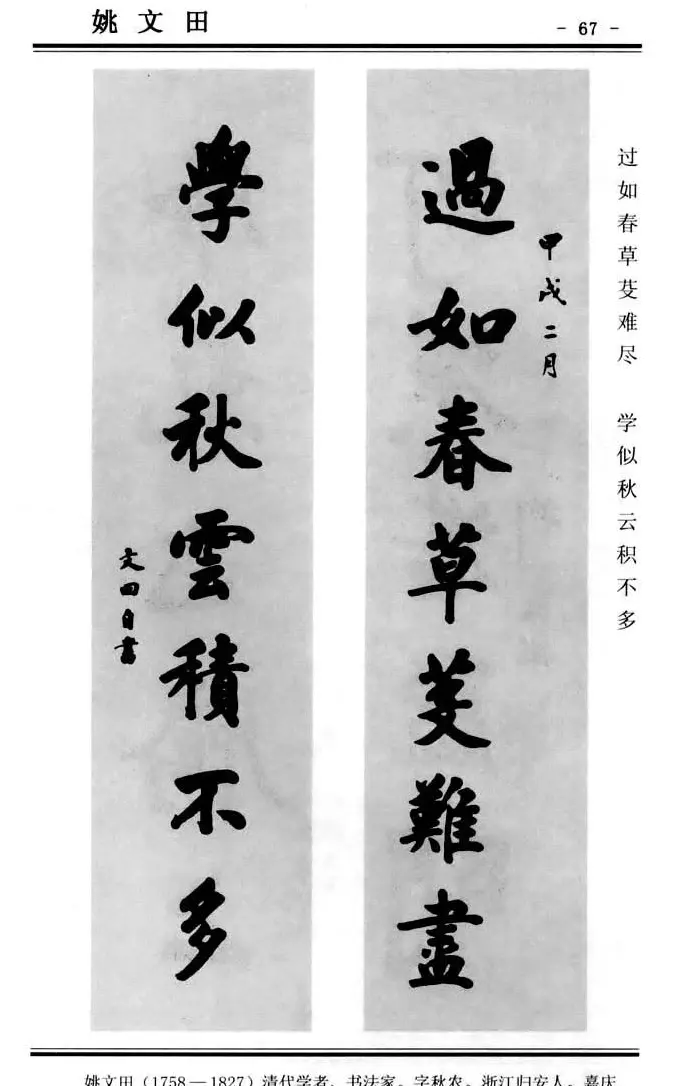 姚文田
- 67 -
过如春草芟难尽 学似秋云积不多
甲戌二月
過如春草芟難盡
學似秋雲積不多
文田自書
姚文田（1758—1827）清代学者、书法家。字秋农。浙江归安人。嘉庆